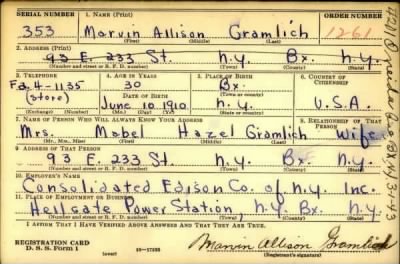 SERIAL NUMBER 1. NAME (Print) ORDER NUMBER
353 Marvin Allison Gramlich 1261
(First) (Middle) (Last)
2. ADDRESS (Print)
93 E. 233 St. N.Y. Bx. N.Y.
(Number and street or R. F. D. number) (Town) (County) (State)
3. TELEPHONE 4. AGE IN YEARS 5. PLACE OF BIRTH 6. COUNTRY OF CITIZENSHIP
Fa. 4-1135 30 Bx.
(Store) DATE OF BIRTH (Town or county)
June 10 1910 N.Y. U.S.A.
(Exchange) (Number) (Mo.) (Day) (Yr.) (State or country)
7. NAME OF PERSON WHO WILL ALWAYS KNOW YOUR ADDRESS 8. RELATIONSHIP OF THAT PERSON
Mrs. Mabel Hazel Gramlich Wife
(Mr., Mrs., Miss) (First) (Middle) (Last)
9. ADDRESS OF THAT PERSON
93 E. 233 St. N.Y. Bx. N.Y.
(Number and street or R. F. D. number) (Town) (County) (State)
10. EMPLOYER'S NAME
Consolidated Edison Co. of N.Y. Inc.
11. PLACE OF EMPLOYMENT OR BUSINESS
Hellgate Power Station, N.Y. Bx. N.Y.
(Number and street or R. F. D. number) (Town) (County) (State)
I AFFIRM THAT I HAVE VERIFIED ABOVE ANSWERS AND THAT THEY ARE TRUE.
REGISTRATION CARD
D. S. S. Form 1 (over) Marvin Allison Gramlich
(Registrant's signature)